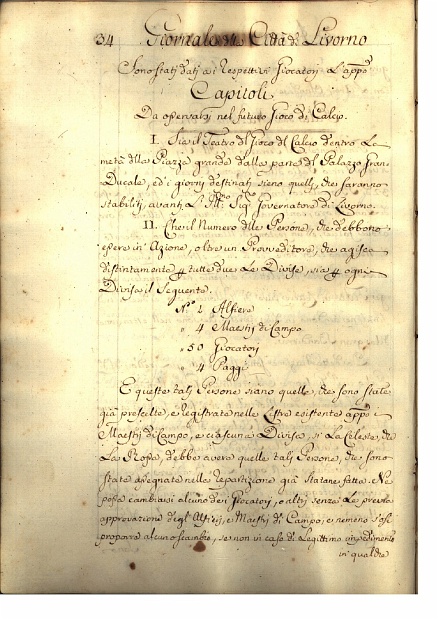 34 Giornale della Città di Livorno
Sono stati dati ai Respettivi Giocatori l'appo
Capitoli
Da osservarsi nel futuro Gioco di Calcio.
I. Sia il Teatro del Gioco del Calcio dentro La
metà della Piazza grande dalla parte del Palazzo Gran
Ducale, ed i giorni destinati sieno quelli, che saranno
stabiliti, avanti L'Ill.mo Sig.r Governatore di Livorno.
II. Che il Numero delle Persone, che debbono
essere in Azione, oltre un Provveditore, che agisca
distintamente p tutte due Le Divise, sia p ogni
Divisa il Sequente.
N.o 2 Alfieri
" 4 Maestri di Campo
" 50 Giocatori
" 4 Paggi
E queste tali Persone siano quelle, che sono state
già prescelte, e registrate nelle Listre esistente app.o i
Maestri di Campo, e ciascuna Divisa, sì La Celeste, che
La Rossa, debba avere quelle tali Persone, che sono
state assegnate nella repartizione già statane fatta. Ne
possa cambiarsi alcuno dei Giocatori, o altri senza La previa
approvazione degl'Alfieri, e Maestri di Campo, e nemeno s'osi
proporre alcuno scambio, se non in caso di Legittimo impedimento
in qualche